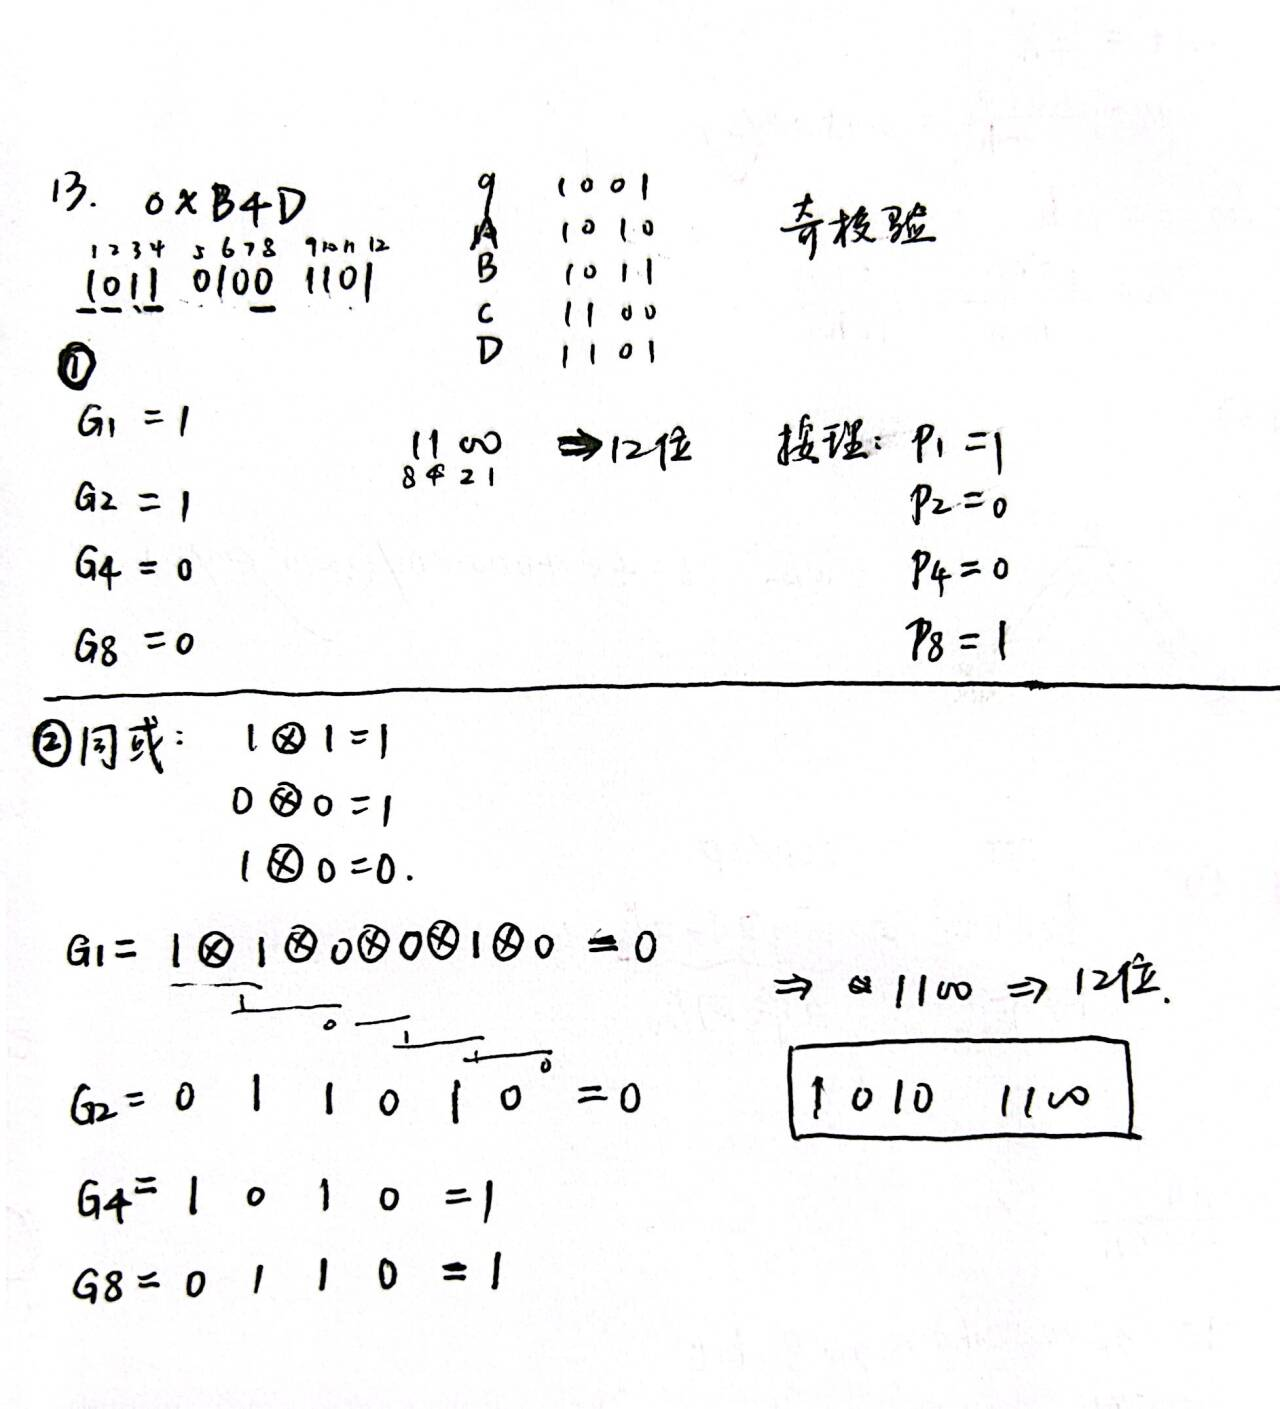 13. 0xB4D
1 2 3 4 5 6 7 8 9 10 11 12
1011 0100 1101
9 1001
A 1010
B 1011
C 1100
D 1101
奇校验
①
G1 = 1
G2 = 1
G4 = 0
G8 = 0
1100 ⇒ 12位
8 4 2 1
按理: P1 = 1
P2 = 0
P4 = 0
P8 = 1
②同或: 1 ⊗ 1 = 1
0 ⊗ 0 = 1
1 ⊗ 0 = 0.
G1 = 1 ⊗ 1 ⊗ 0 ⊗ 0 ⊗ 1 ⊗ 0 = 0
1 0 1 1 0
G2 = 0 1 1 0 1 0 = 0
G4 = 1 0 1 0 = 1
G8 = 0 1 1 0 = 1
⇒ 1100 ⇒ 12位.
1010 1100